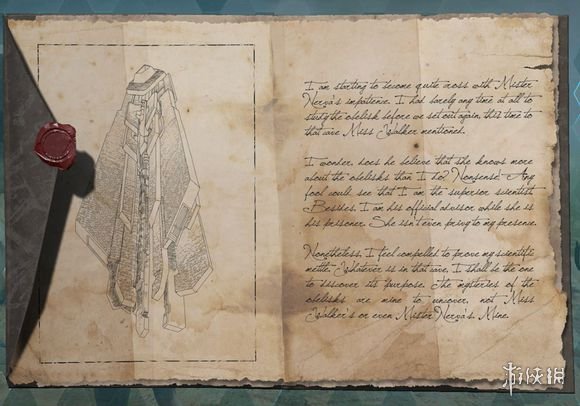 I am starting to become quite cross with Mister
Nerva's impatience. I had barely any time at all to
study the obelisk before we set out again, this time to
that cave Miss Walker mentioned.
I wonder, does he believe that she knows more
about the obelisks than I do? Nonsense! Any
fool could see that I am the superior scientist.
Besides, I am his official advisor while she is
his prisoner. She isn't even privy to my presence.
Nonetheless, I feel compelled to prove my scientific
mettle. Whatever is in that cave, I shall be the one
to discover its purpose. The mysteries of the
obelisks are mine to uncover, not Miss
Walker's or even Mister Nerva's. Mine.
游侠网